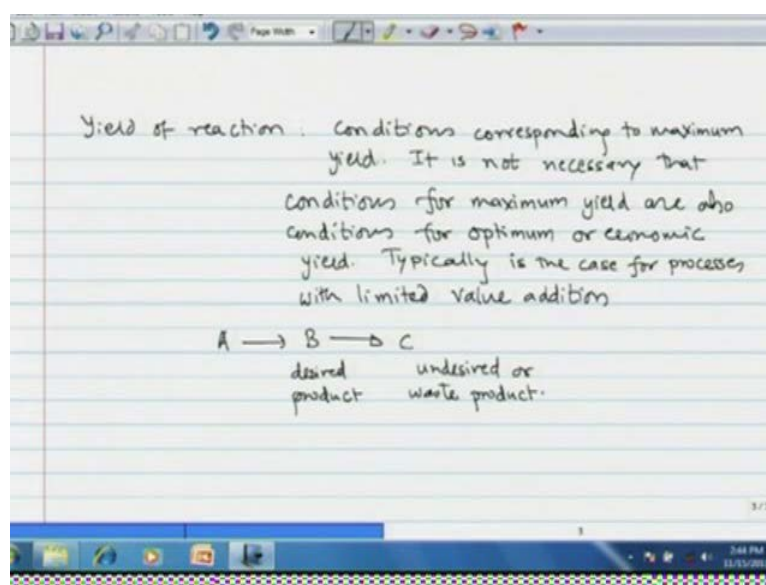 Page Width
Yield of reaction : conditions corresponding to maximum
yield. It is not necessary that
conditions for maximum yield are also
conditions for optimum or economic
yield. Typically is the case for processes
with limited value addition
A → B → C
desired undesired or
product waste product.
3/
1
2:44 PM